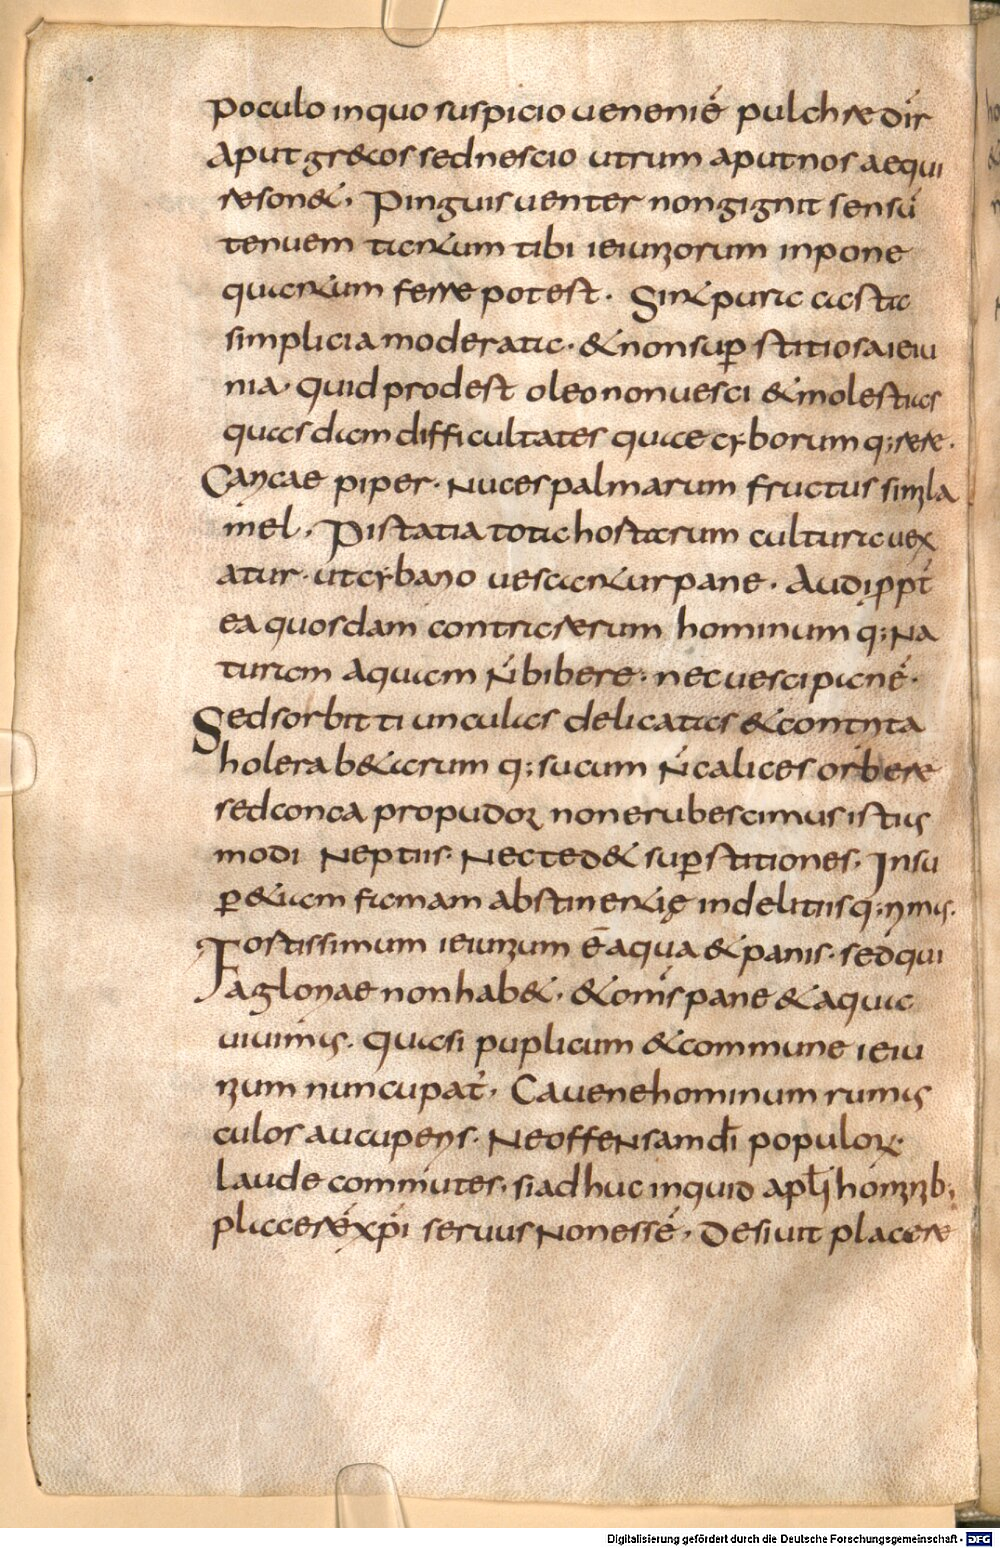 poculo in quo suspicio ueneni é pulchre dir̄
Aput grecos sed nescio utrum aput nos aequi
reson&. Pinguis uenter non gignit sensū
tenuem tantum tibi ieiuniorum inpone
quantum ferre potest. Sint pura casta
simplicia moderata. & non sup̱ stitiosa ieiu
nia. quid prodest oleo non uesci & molestias
quasdam difficultates quae cyborum q;rere.
Caricae piper. Nuces palmarum fructus simila
mel. Pistatia tota hostorum cultura uex
atur. ut cybario uescantur pane. Audi ppt̄
ea quosdam contra rerum hominum q; Na
turam Aquam n̄ bibere. nec uesci pane.
Sed sorbitiunculas delicatas & contrita
holera b&arum q; sucum N̄ calice sorbere
sed conca pro pudor non erubescimus istius
modi Neptiis. Nec ted& sup̱stitiones. Insu
p̱ &iam famam abstinentię in delitiis q;rimus.
Fortissimum ieiunium ē aqua & panis. sed qui
a gloriae non hab&. & om̄s pane & aqua
uiuimus. Quasi puplicum & commune ieiu
nium nun cupat̄. Caue ne hominum rumus
culos aucuperis. Ne offensam dī populorum
laude commutes. si adhuc inquid apl̄s hominib;
placere xp̄i seruus Non essē. Desiuit placere
Digitalisierung gefördert durch die Deutsche Forschungsgemeinschaft - DFG